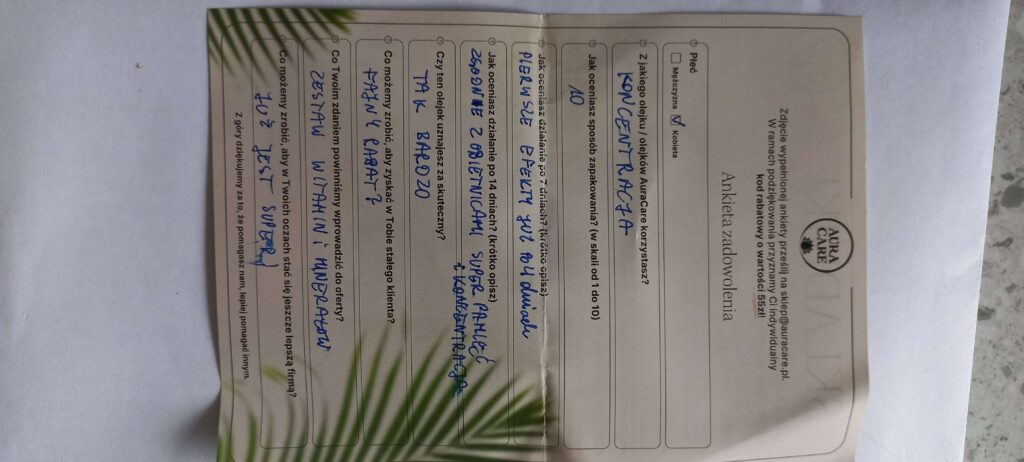 AURA
CARE
Zdjęcie wypełnionej ankiety prześlij na sklep@auracare.pl.
W ramach podziękowania przyznamy Ci indywidualny
kod rabatowy o wartości 55zł!
Ankieta zadowolenia
Płeć
Mężczyzna Kobieta
Z jakiego olejku / olejków AuraCare korzystasz?
KONCENTRACJA
Jak oceniasz sposób zapakowania? (w skali od 1 do 10)
10
Jak oceniasz działanie po 7 dniach? (krótko opisz)
PIERWSZE EFEKTY JUŻ PO 4 dniach
Jak oceniasz działanie po 14 dniach? (krótko opisz)
ZGODNIE Z OBIETNICAMI SUPER PAMIĘĆ
I KONCENTRACJA
Czy ten olejek uznajesz za skuteczny?
TAK BARDZO
Co możemy zrobić, aby zyskać w Tobie stałego klienta?
FAJNY RABAT?
Co Twoim zdaniem powinniśmy wprowadzić do oferty?
ZESTAW WITAMIN I MINERAŁÓW
Co możemy zrobić, aby w Twoich oczach stać się jeszcze lepszą firmą?
JUŻ JEST SUPER)
Z góry dziękujemy za to, że pomagasz nam, lepiej pomagać innym.